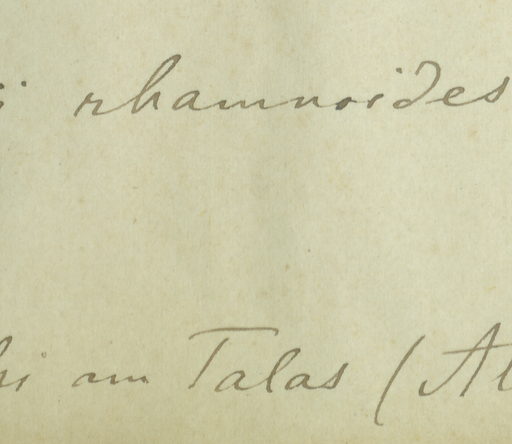 rhamnoides
am Talas (